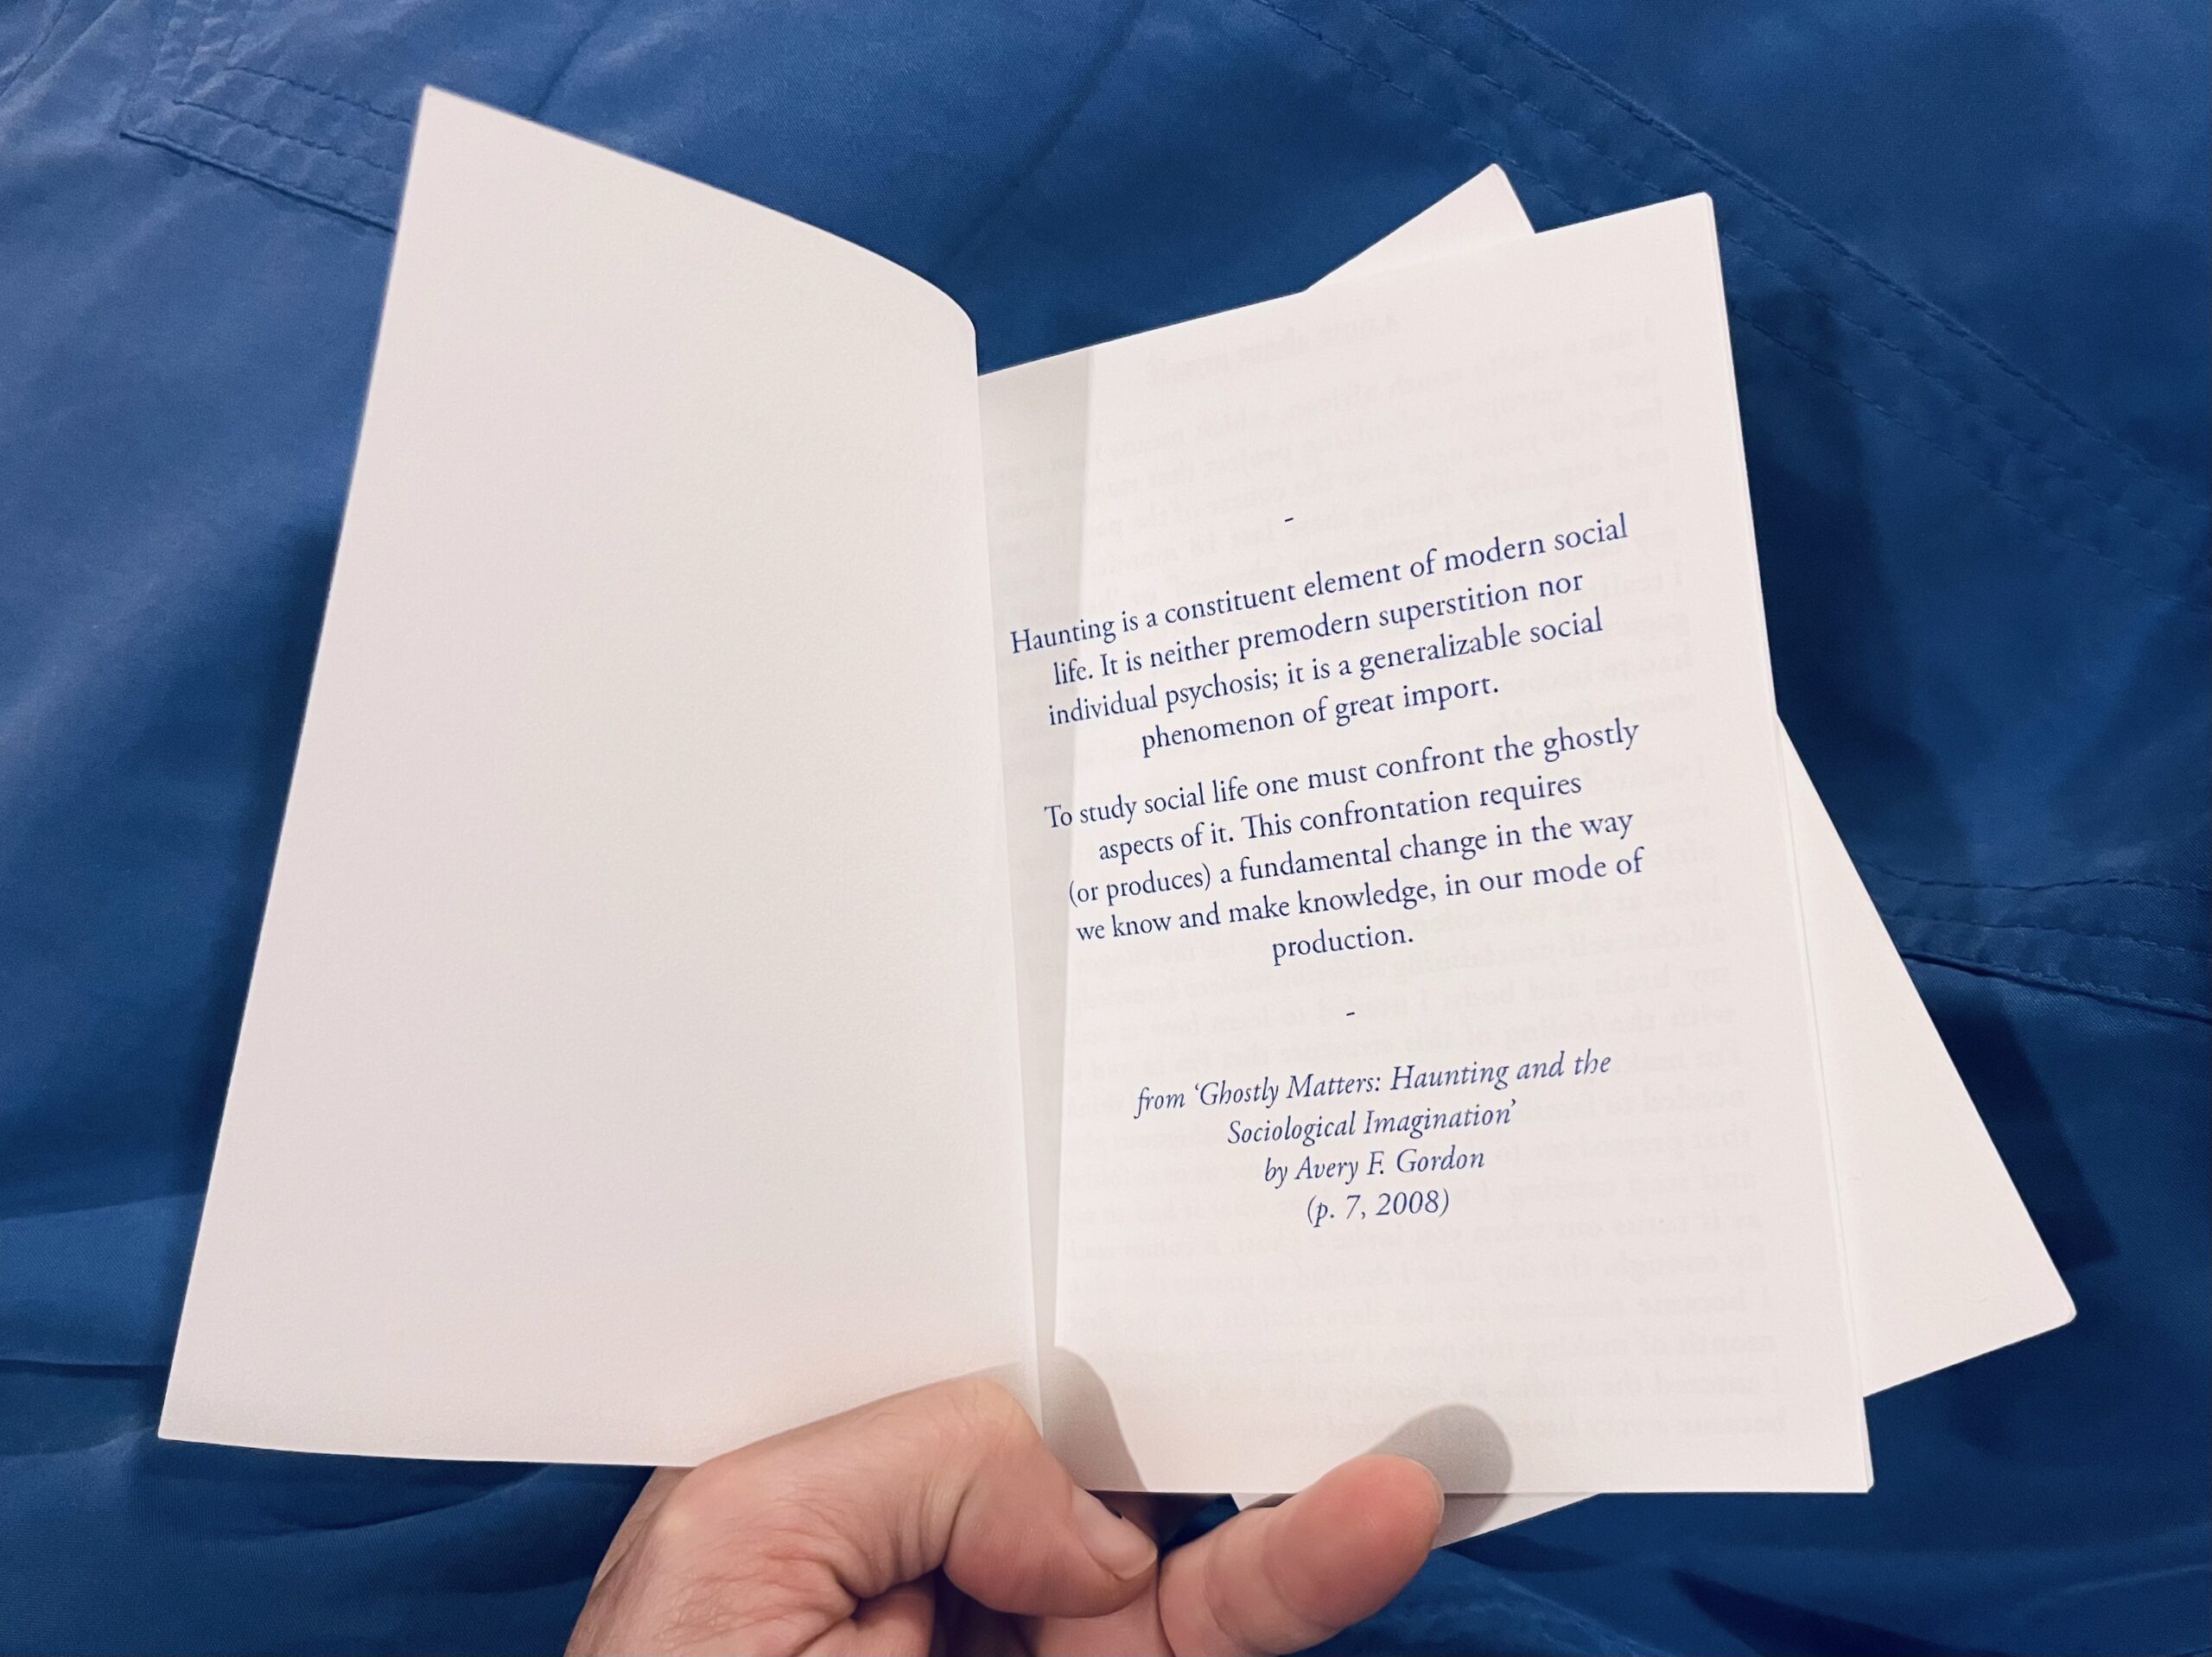 -
Haunting is a constituent element of modern social
life. It is neither premodern superstition nor
individual psychosis; it is a generalizable social
phenomenon of great import.
To study social life one must confront the ghostly
aspects of it. This confrontation requires
(or produces) a fundamental change in the way
we know and make knowledge, in our mode of
production.
-
from ‘Ghostly Matters: Haunting and the
Sociological Imagination’
by Avery F. Gordon
(p. 7, 2008)